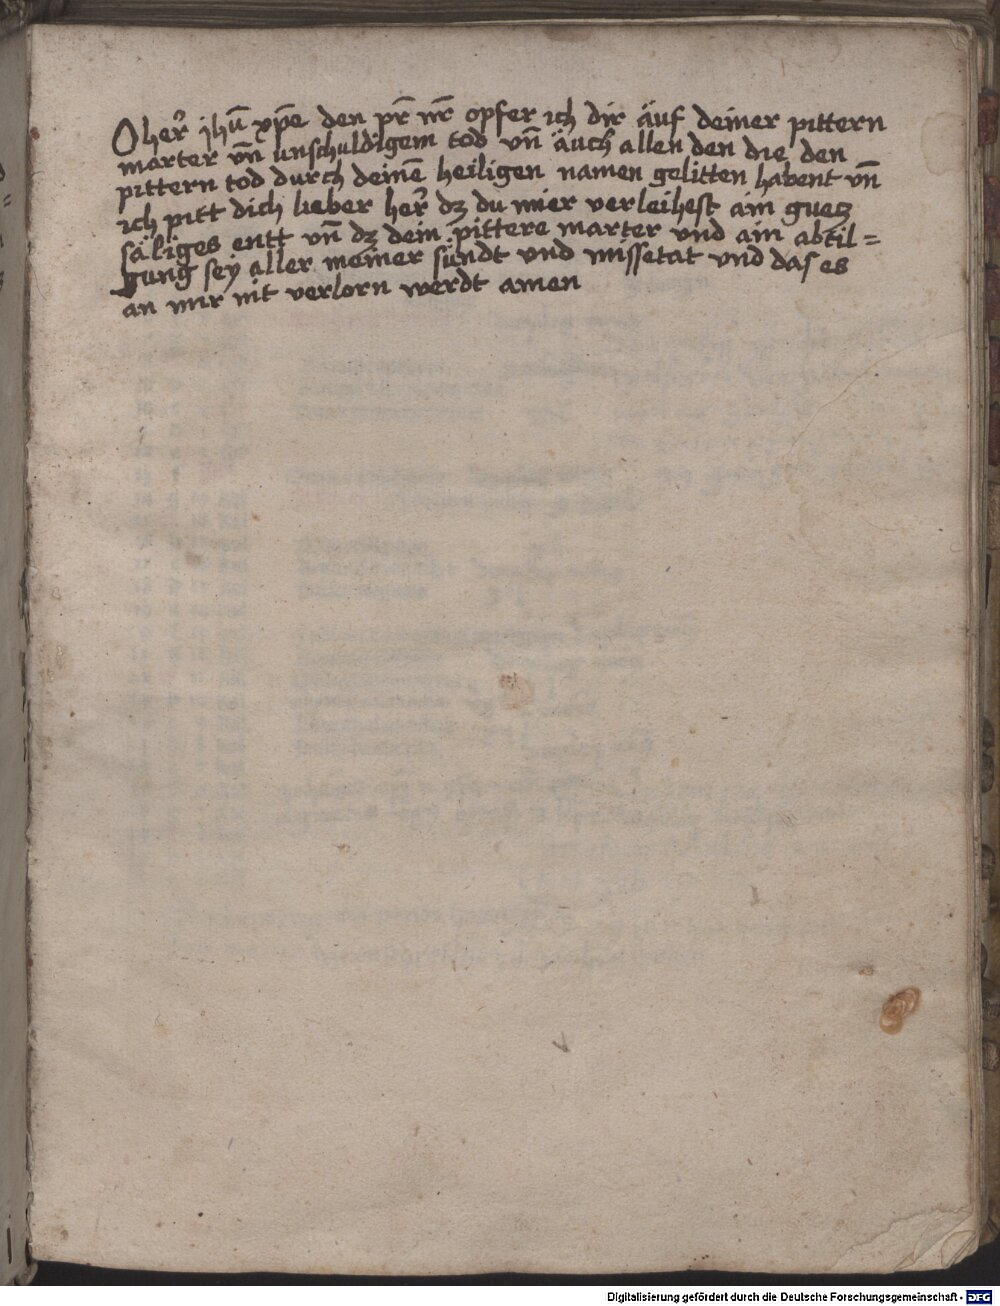 O her᷑ jhū xp̄e den pr̄ nr̄ opfer ich dir äuf deiner pittern
marter vn̄ unschuldigem tod vn̄ äuch allen den die den
pittern tod durch deinē heiligen namen gelitten habent vn̄
ich pitt dich lieber her᷑ dz du mier verleihest ain guetz
säliges entt vn̄ dz dein pittere marter vnd ain abtil=
gung sey aller meiner sündt vnd missetat vnd das es
an mir nit verlorn werdt amen
Digitalisierung gefördert durch die Deutsche Forschungsgemeinschaft - DFG